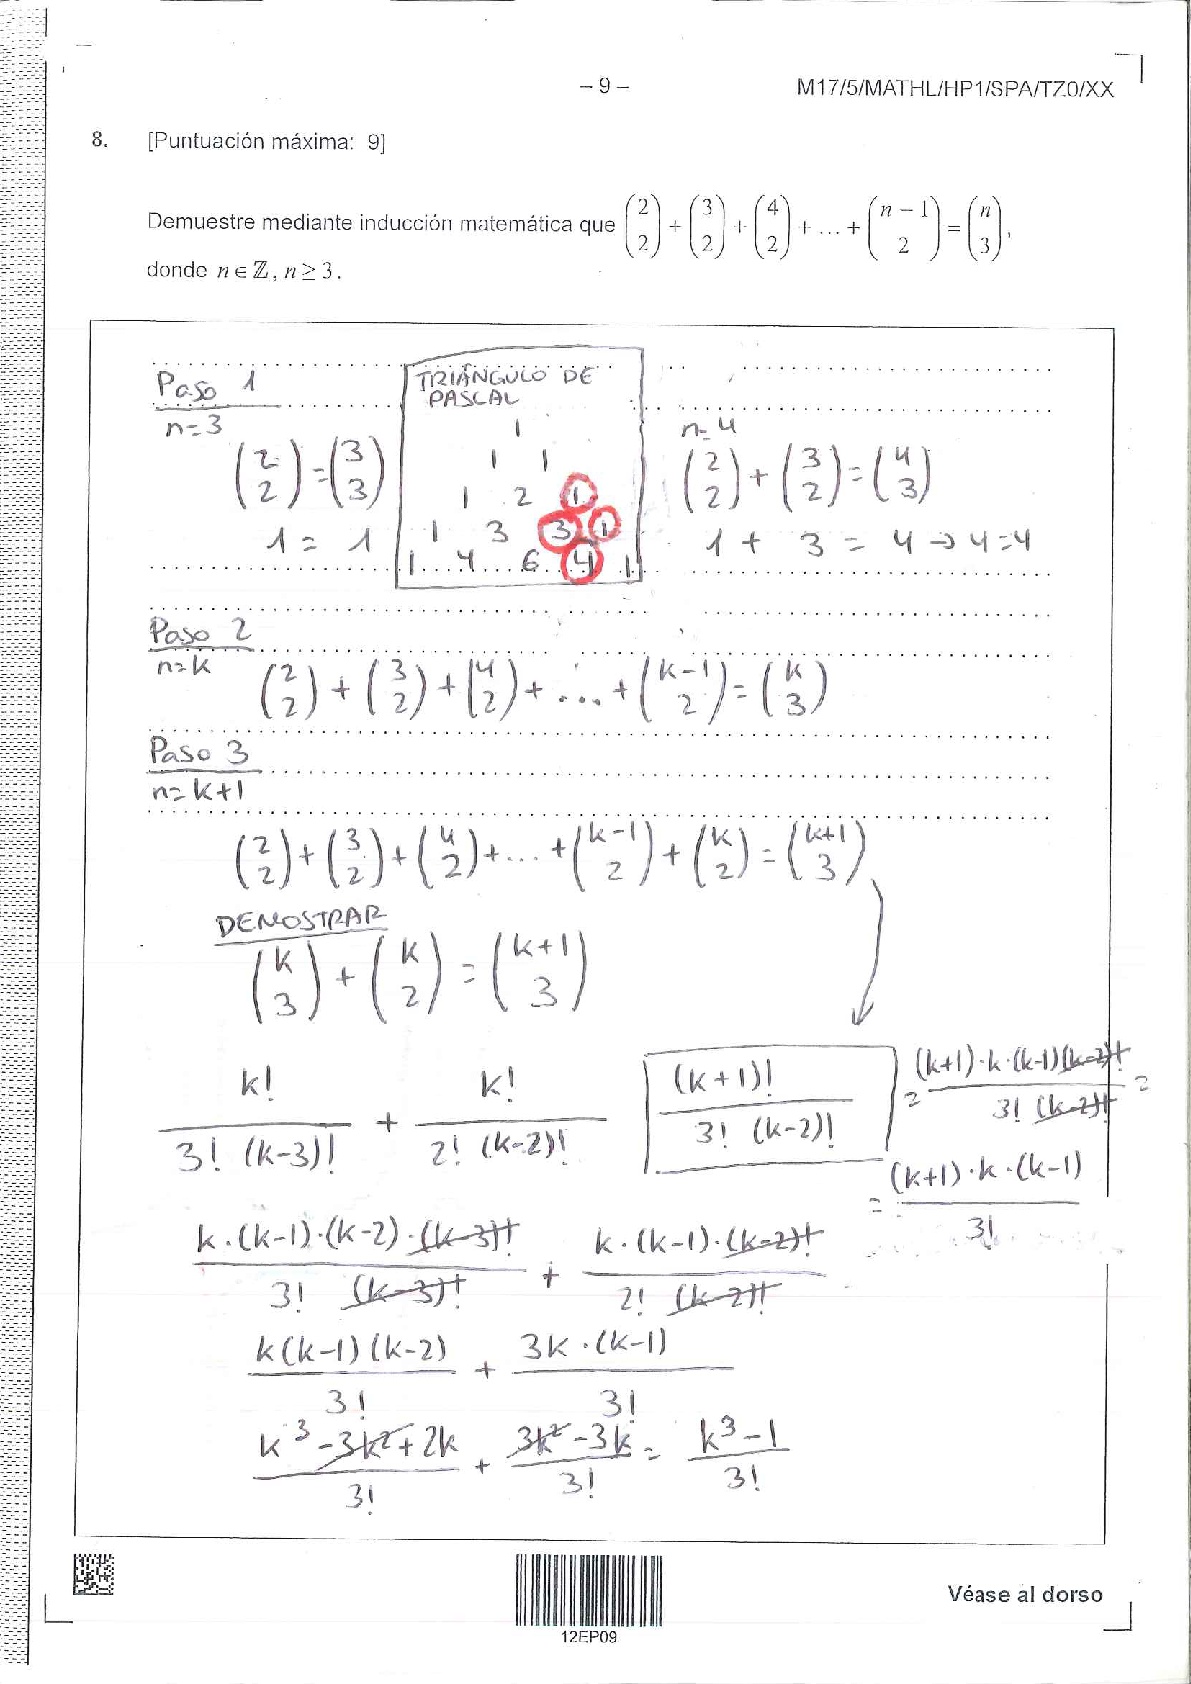 – 9 –
M17/5/MATHL/HP1/SPA/TZ0/XX
8. [Puntuación máxima: 9]
Demuestre mediante inducción matemática que (2 2) + (3 2) + (4 2) + ... + (n – 1 2) = (n 3),
donde n ∈ ℤ, n ≥ 3.
Paso 1
n=3
(2 2) = (3 3)
1 = 1
TRIÁNGULO DE
PASCAL
1
1 1
1 2 1
1 3 3 1
1 4 6 4 1
n=4
(2 2) + (3 2) = (4 3)
1 + 3 = 4 → 4=4
Paso 2
n=k
(2 2) + (3 2) + (4 2) + ... + (k-1 2) = (k 3)
Paso 3
n=k+1
(2 2) + (3 2) + (4 2) + ... + (k-1 2) + (k 2) = (k+1 3)
DEMOSTRAR
(k 3) + (k 2) = (k+1 3)
k! / 3! (k-3)! + k! / 2! (k-2)!
(k+1)! / 3! (k-2)! = (k+1)·k·(k-1)(k-2)! / 3! (k-2)! =
= (k+1)·k·(k-1) / 3!
k·(k-1)·(k-2)·(k-3)! / 3! (k-3)! + k·(k-1)·(k-2)! / 2! (k-2)!
k(k-1)(k-2) / 3! + 3k·(k-1) / 3!
k³-3k²+2k / 3! + 3k²-3k / 3! = k³-1 / 3!
12EP09
Véase al dorso